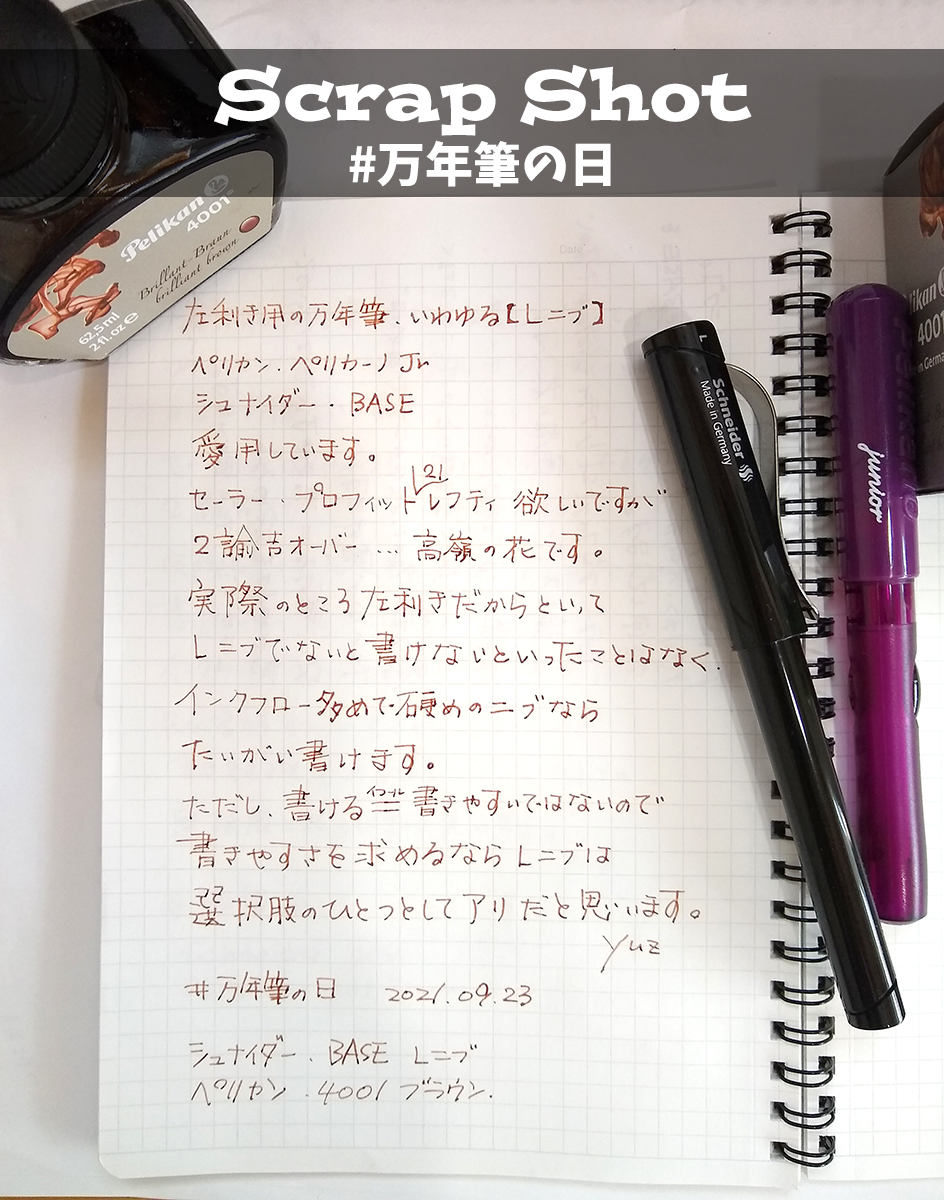 Scrap Shot
#万年筆の日
Pelikan
4001
Brillant-Braun
brilliant brown
62,5 ml
2 fl. oz e
Date
左利き用の万年筆、いわゆる【Lニブ】
ペリカン・ペリカーノJr
シュナイダー・BASE
愛用しています。
21
セーラー・プロフィットレフティ 欲しいですが
2諭吉オーバー…高嶺の花です。
実際のところ左利きだからといって
Lニブでないと書けないといったことはなく、
インクフロー多めで硬めのニブなら
たいがい書けます。
イコール
ただし、書ける=書きやすいではないので
書きやすさを求めるならLニブは
選択肢のひとつとしてアリだと思います。
yuz
#万年筆の日 2021.09.23
シュナイダー・BASE Lニブ
ペリカン・4001ブラウン.
L
Schneider
Made in Germany
junior
Pelikan
4001
in Germany